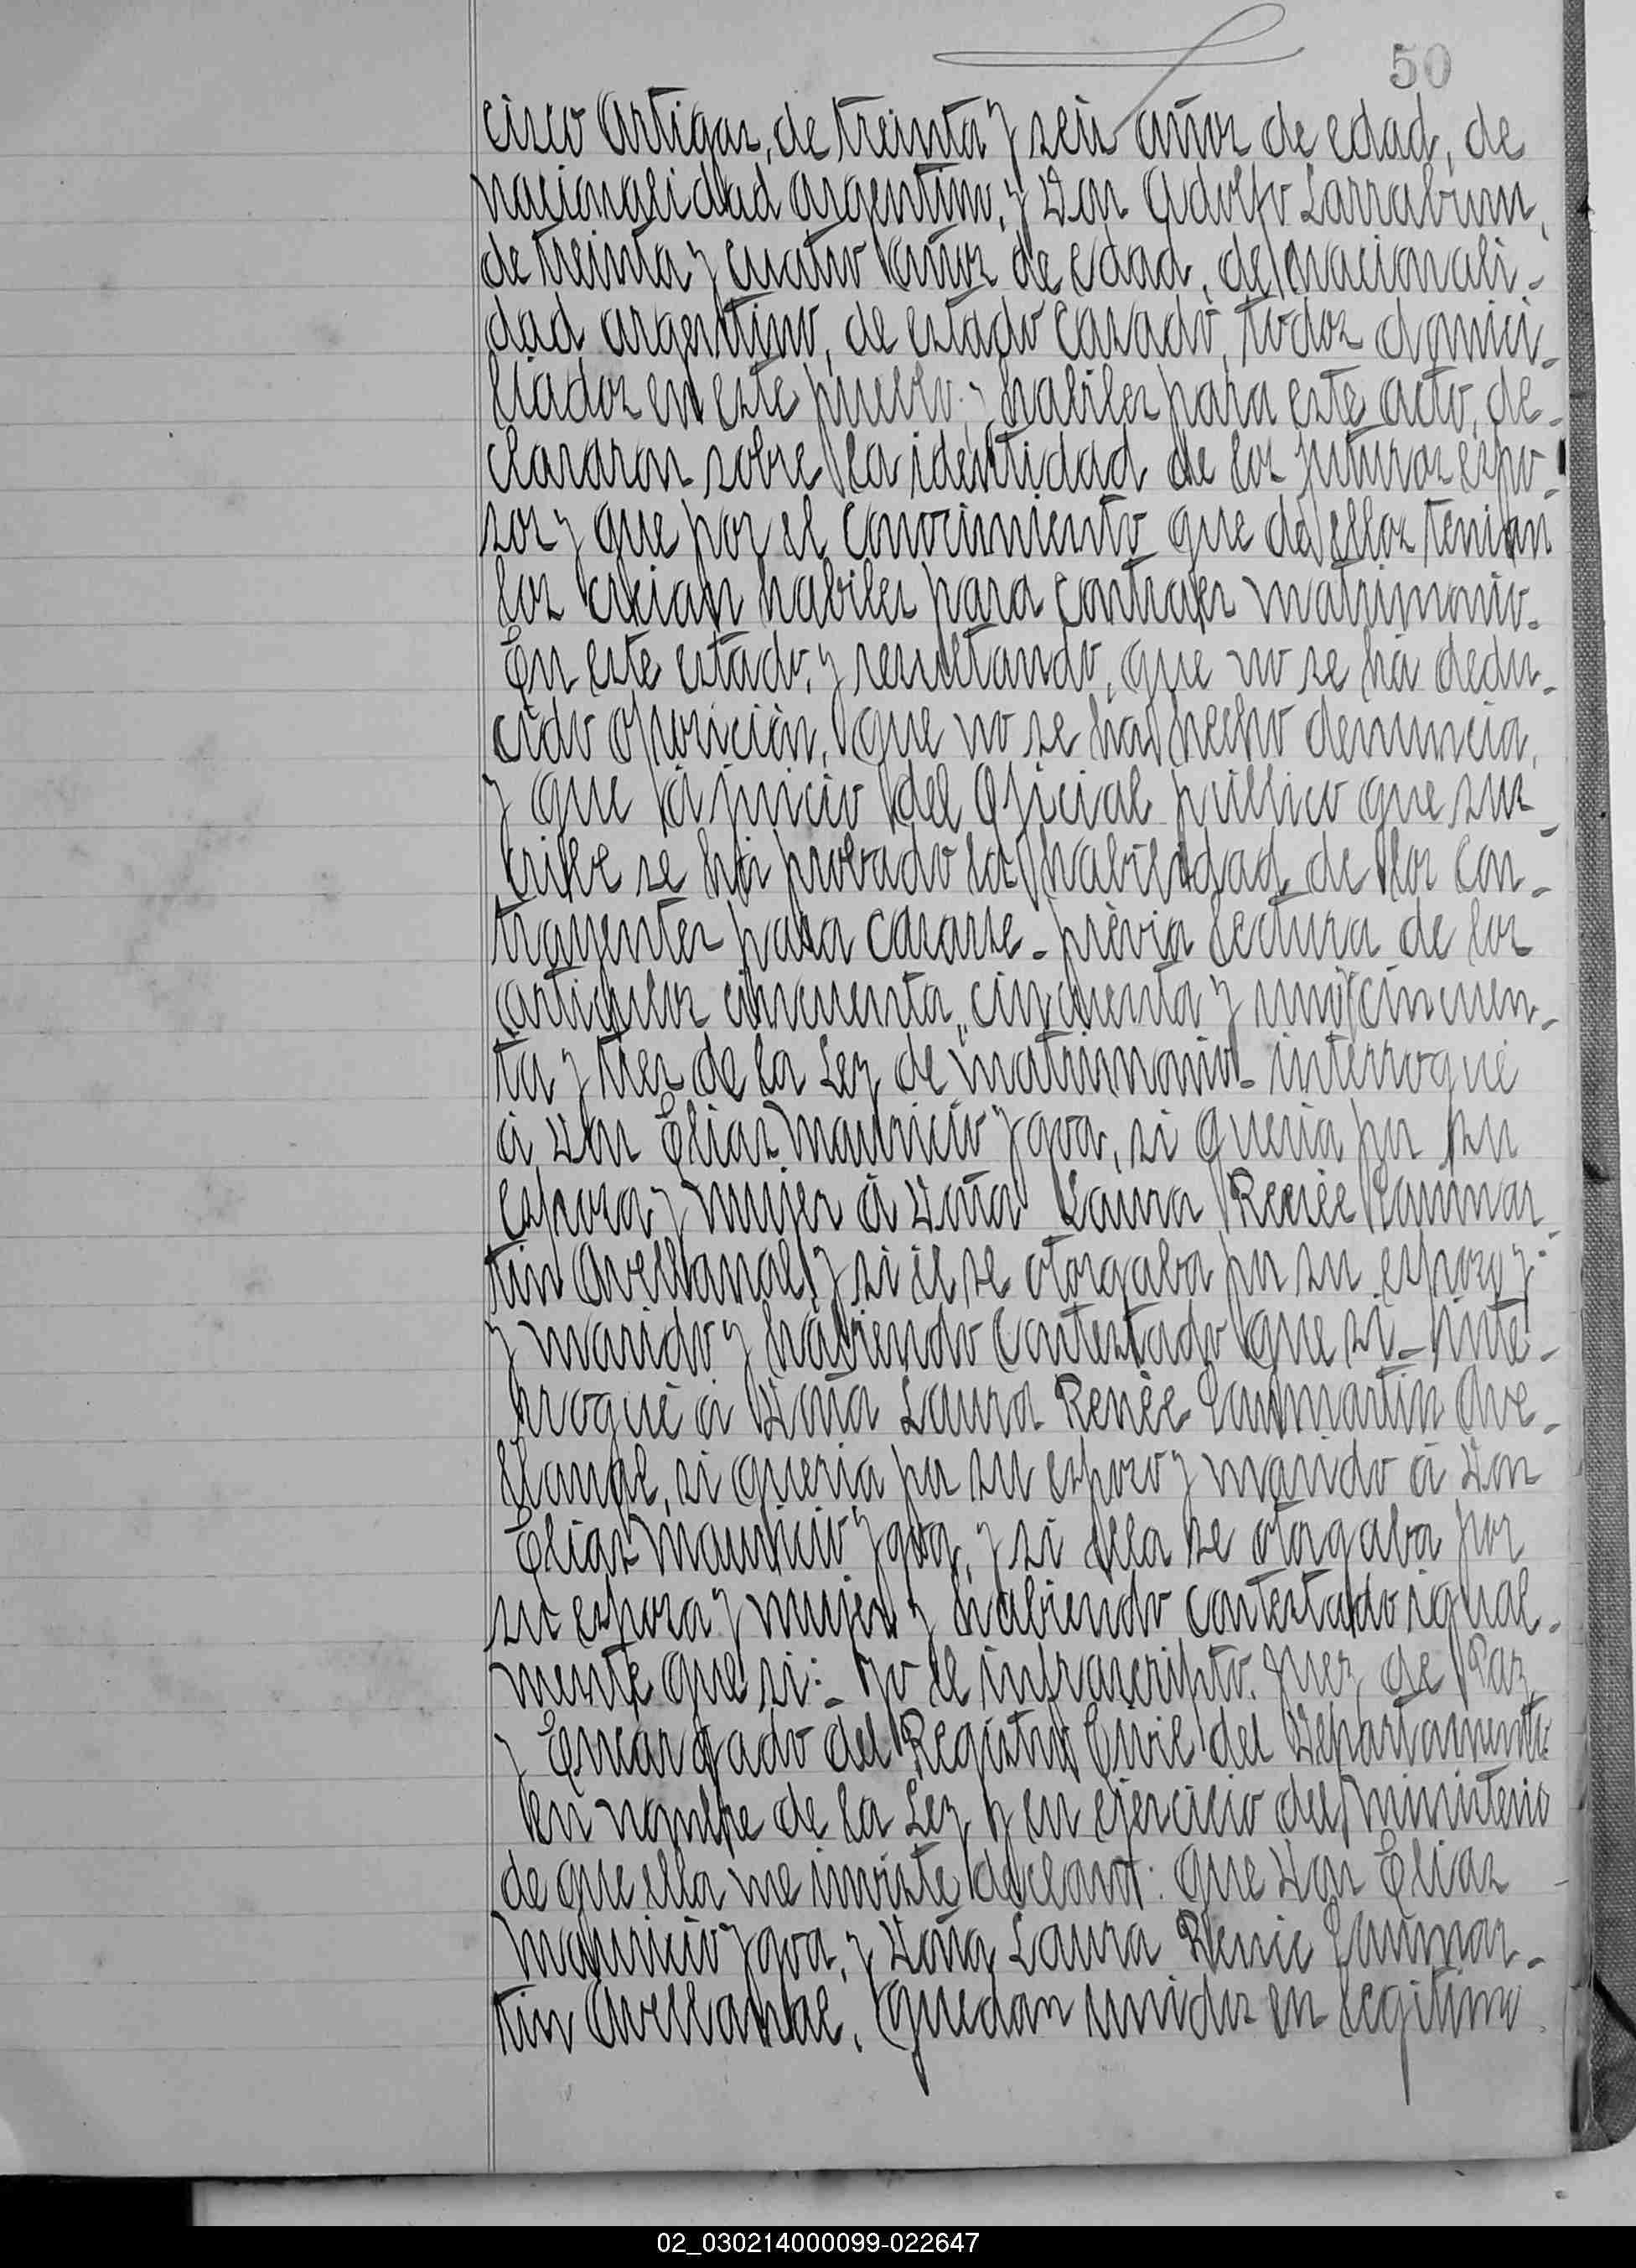 50
cisco Artigas, de treinta y seis años de edad, de
nacionalidad argentino, y Don Adolfo Larrabun,
de treinta y cuatro años de edad, de nacionali-
dad argentino, de estado casado, todos domici-
liados en este pueblo y habiles para este acto, de-
clararon sobre la identidad de los futuros espo-
sos y que por el conocimiento que de ellos tenian
los creian habiles para contraer matrimonio.
En este estado, y resultando, que no se há dedu-
cido oposición, que no se há hecho denuncia,
y que á juicio del Oficial público que sus-
cribe se há probado la habilidad de los con-
trayentes para casarse - prévia lectura de los
articulos cincuenta, cincuenta y uno, cincuen-
ta y tres de la Ley de matrimonio - interrogué
á Don Elias Mauricio Ygoa, si queria por su
esposa y mujer á Doña Laura Renée Sanmar-
tin Avellanal, y si él se otorgaba por su esposo y
y marido y habiendo contestado que si - inte-
rrogué á Doña Laura Renée Sanmartin Ave-
llanal, si queria por su esposo y marido á Don
Elias Mauricio Ygoa, y si ella se otorgaba por
su esposa y mujer y habiendo contestado igual-
mente que si: - Yo el infrascripto. Juez de Paz
y Encargado del Registro Civil del Departamento
en nombre de la Ley y en ejercicio del ministerio
de que ella me inviste declaro: que Don Elias
Mauricio Ygoa, y Doña Laura Renée Sanmar-
tin Avellanal, quedan unidos en legitimo
02_030214000099-022647